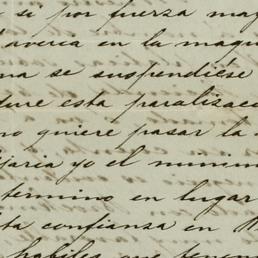 si por fuerza ma
averea en la maqu
na se suspendiése
dure esta paralizac
no quiere pasar la
jaria yo el minim
termino en lugar
ta confianza en
habiles que tenem